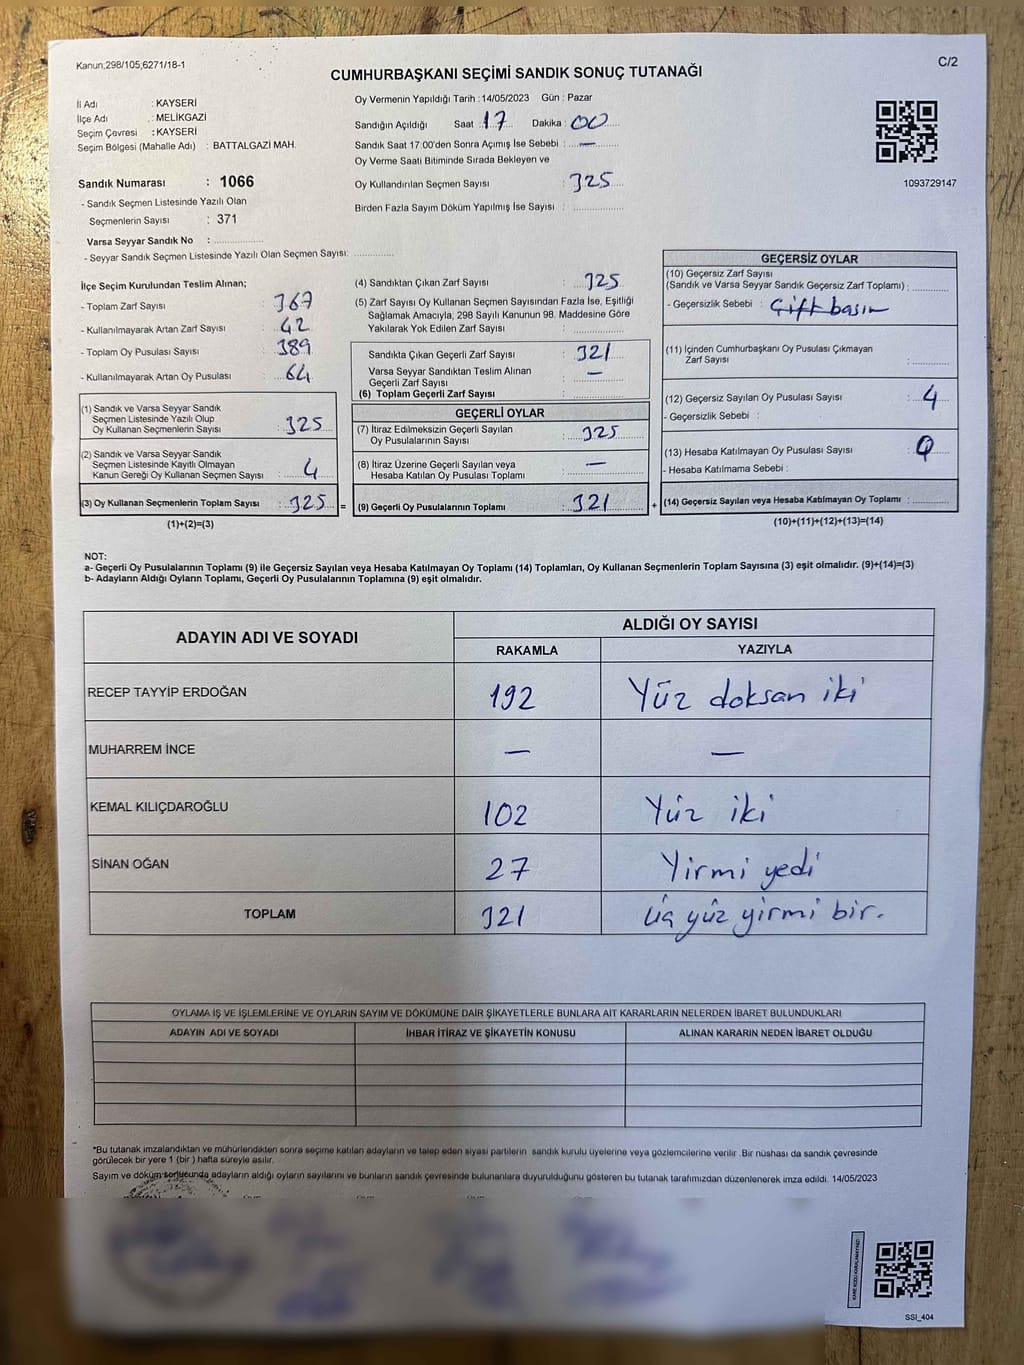 Kanun,298/105,6271/18-1
C/2
CUMHURBAŞKANI SEÇİMİ SANDIK SONUÇ TUTANAĞI
İl Adı : KAYSERİ
İlçe Adı : MELİKGAZİ
Seçim Çevresi : KAYSERİ
Seçim Bölgesi (Mahalle Adı) : BATTALGAZİ MAH.
Sandık Numarası : 1066
- Sandık Seçmen Listesinde Yazılı Olan
Seçmenlerin Sayısı : 371
Varsa Seyyar Sandık No :
- Seyyar Sandık Seçmen Listesinde Yazılı Olan Seçmen Sayısı:
Oy Vermenin Yapıldığı Tarih : 14/05/2023 Gün : Pazar
Sandığın Açıldığı Saat : 17 Dakika : 00
Sandık Saat 17:00'den Sonra Açımış İse Sebebi : —
Oy Verme Saati Bitiminde Sırada Bekleyen ve
Oy Kullandırılan Seçmen Sayısı : 325
Birden Fazla Sayım Döküm Yapılmış İse Sayısı :
1093729147
İlçe Seçim Kurulundan Teslim Alınan;
- Toplam Zarf Sayısı : 367
- Kullanılmayarak Artan Zarf Sayısı : 42
- Toplam Oy Pusulası Sayısı : 389
- Kullanılmayarak Artan Oy Pusulası : 64
(1) Sandık ve Varsa Seyyar Sandık
Seçmen Listesinde Yazılı Olup
Oy Kullanan Seçmenlerin Sayısı : 325
(2) Sandık ve Varsa Seyyar Sandık
Seçmen Listesinde Kayıtlı Olmayan
Kanun Gereği Oy Kullanan Seçmen Sayısı : 4
(3) Oy Kullanan Seçmenlerin Toplam Sayısı : 325 =
(1)+(2)=(3)
(4) Sandıktan Çıkan Zarf Sayısı : 325
(5) Zarf Sayısı Oy Kullanan Seçmen Sayısından Fazla İse, Eşitliği
Sağlamak Amacıyla, 298 Sayılı Kanunun 98. Maddesine Göre
Yakılarak Yok Edilen Zarf Sayısı :
Sandıkta Çıkan Geçerli Zarf Sayısı : 321
Varsa Seyyar Sandıktan Teslim Alınan
Geçerli Zarf Sayısı : —
(6) Toplam Geçerli Zarf Sayısı :
GEÇERLİ OYLAR
(7) İtiraz Edilmeksizin Geçerli Sayılan
Oy Pusulalarının Sayısı : 325
(8) İtiraz Üzerine Geçerli Sayılan veya
Hesaba Katılan Oy Pusulası Toplamı : —
(9) Geçerli Oy Pusulalarının Toplamı : 321 +
GEÇERSİZ OYLAR
(10) Geçersiz Zarf Sayısı
(Sandık ve Varsa Seyyar Sandık Geçersiz Zarf Toplamı) :
- Geçersizlik Sebebi : Çift basım
(11) İçinden Cumhurbaşkanı Oy Pusulası Çıkmayan
Zarf Sayısı :
(12) Geçersiz Sayılan Oy Pusulası Sayısı : 4
- Geçersizlik Sebebi :
(13) Hesaba Katılmayan Oy Pusulası Sayısı : 0
- Hesaba Katılmama Sebebi :
(14) Geçersiz Sayılan veya Hesaba Katılmayan Oy Toplamı :
(10)+(11)+(12)+(13)=(14)
NOT:
a- Geçerli Oy Pusulalarının Toplamı (9) ile Geçersiz Sayılan veya Hesaba Katılmayan Oy Toplamı (14) Toplamları, Oy Kullanan Seçmenlerin Toplam Sayısına (3) eşit olmalıdır. (9)+(14)=(3)
b- Adayların Aldığı Oyların Toplamı, Geçerli Oy Pusulalarının Toplamına (9) eşit olmalıdır.
ADAYIN ADI VE SOYADI ALDIĞI OY SAYISI
RAKAMLA YAZIYLA
RECEP TAYYİP ERDOĞAN 192 Yüz doksan iki
MUHARREM İNCE — —
KEMAL KILIÇDAROĞLU 102 Yüz iki
SİNAN OĞAN 27 Yirmi yedi
TOPLAM 321 Üç yüz yirmi bir.
OYLAMA İŞ VE İŞLEMLERİNE VE OYLARIN SAYIM VE DÖKÜMÜNE DAİR ŞİKAYETLERLE BUNLARA AİT KARARLARIN NELERDEN İBARET BULUNDUKLARI
ADAYIN ADI VE SOYADI İHBAR İTİRAZ VE ŞİKAYETİN KONUSU ALINAN KARARIN NEDEN İBARET OLDUĞU
*Bu tutanak imzalandıktan ve mühürlendikten sonra seçime katılan adayların ve talep eden siyasi partilerin sandık kurulu üyelerine veya gözlemcilerine verilir .Bir nüshası da sandık çevresinde
görülecek bir yere 1 (bir ) hafta süreyle asılır.
Sayım ve döküm sonucunda adayların aldığı oyların sayılarını ve bunların sandık çevresinde bulunanlara duyurulduğunu gösteren bu tutanak tarafımızdan düzenlenerek imza edildi. 14/05/2023
SSI_404